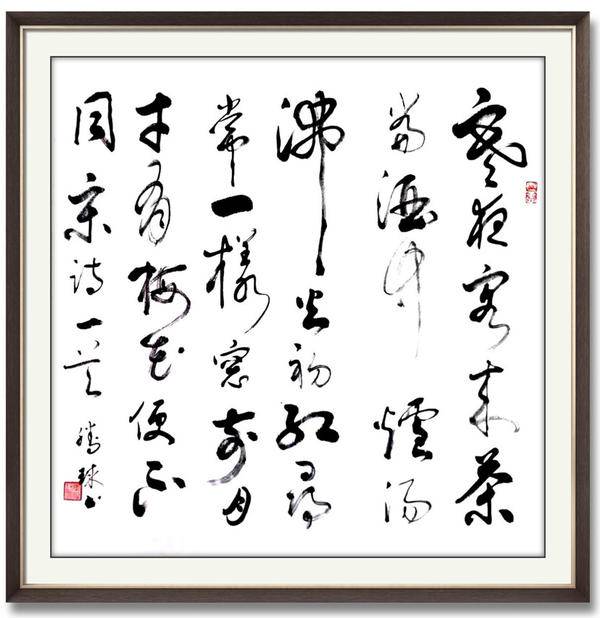 寒夜客来茶
當酒竹爐汤
沸火初红尋
常一樣窗前月
才有梅花便不
同宋诗一首